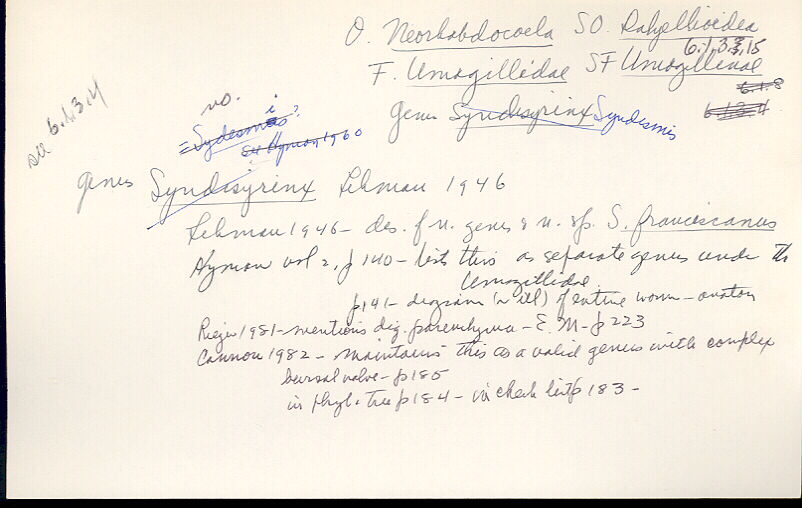 O. Neorhabdocoela SO. Dalyellioidea
6.1.3.3.15
F. Umagillidae SF Umagillinae
6.1.8
6.1.3.4
genus Syndisyrinx Syndesmis
see 6.1.3.4
no.
= Sydesmis?
see Hyman 1960
genus Syndisyrinx Lehman 1946
Lehman 1946 - des. of n. genus & n. sp. S. franciscanus
Hyman vol 2, p 140 - lists this as separate genus under the
Umagillidae
p 141 - diagram (w ill) of entire worm - anatomy
Rieger 1981 - mentions dig. parenchyma - E.M - p 223
Cannon 1982 - maintains this as a valid genus with complex
bursal valve - p 185
in phyl. tree p 184 - in check list p 183 -